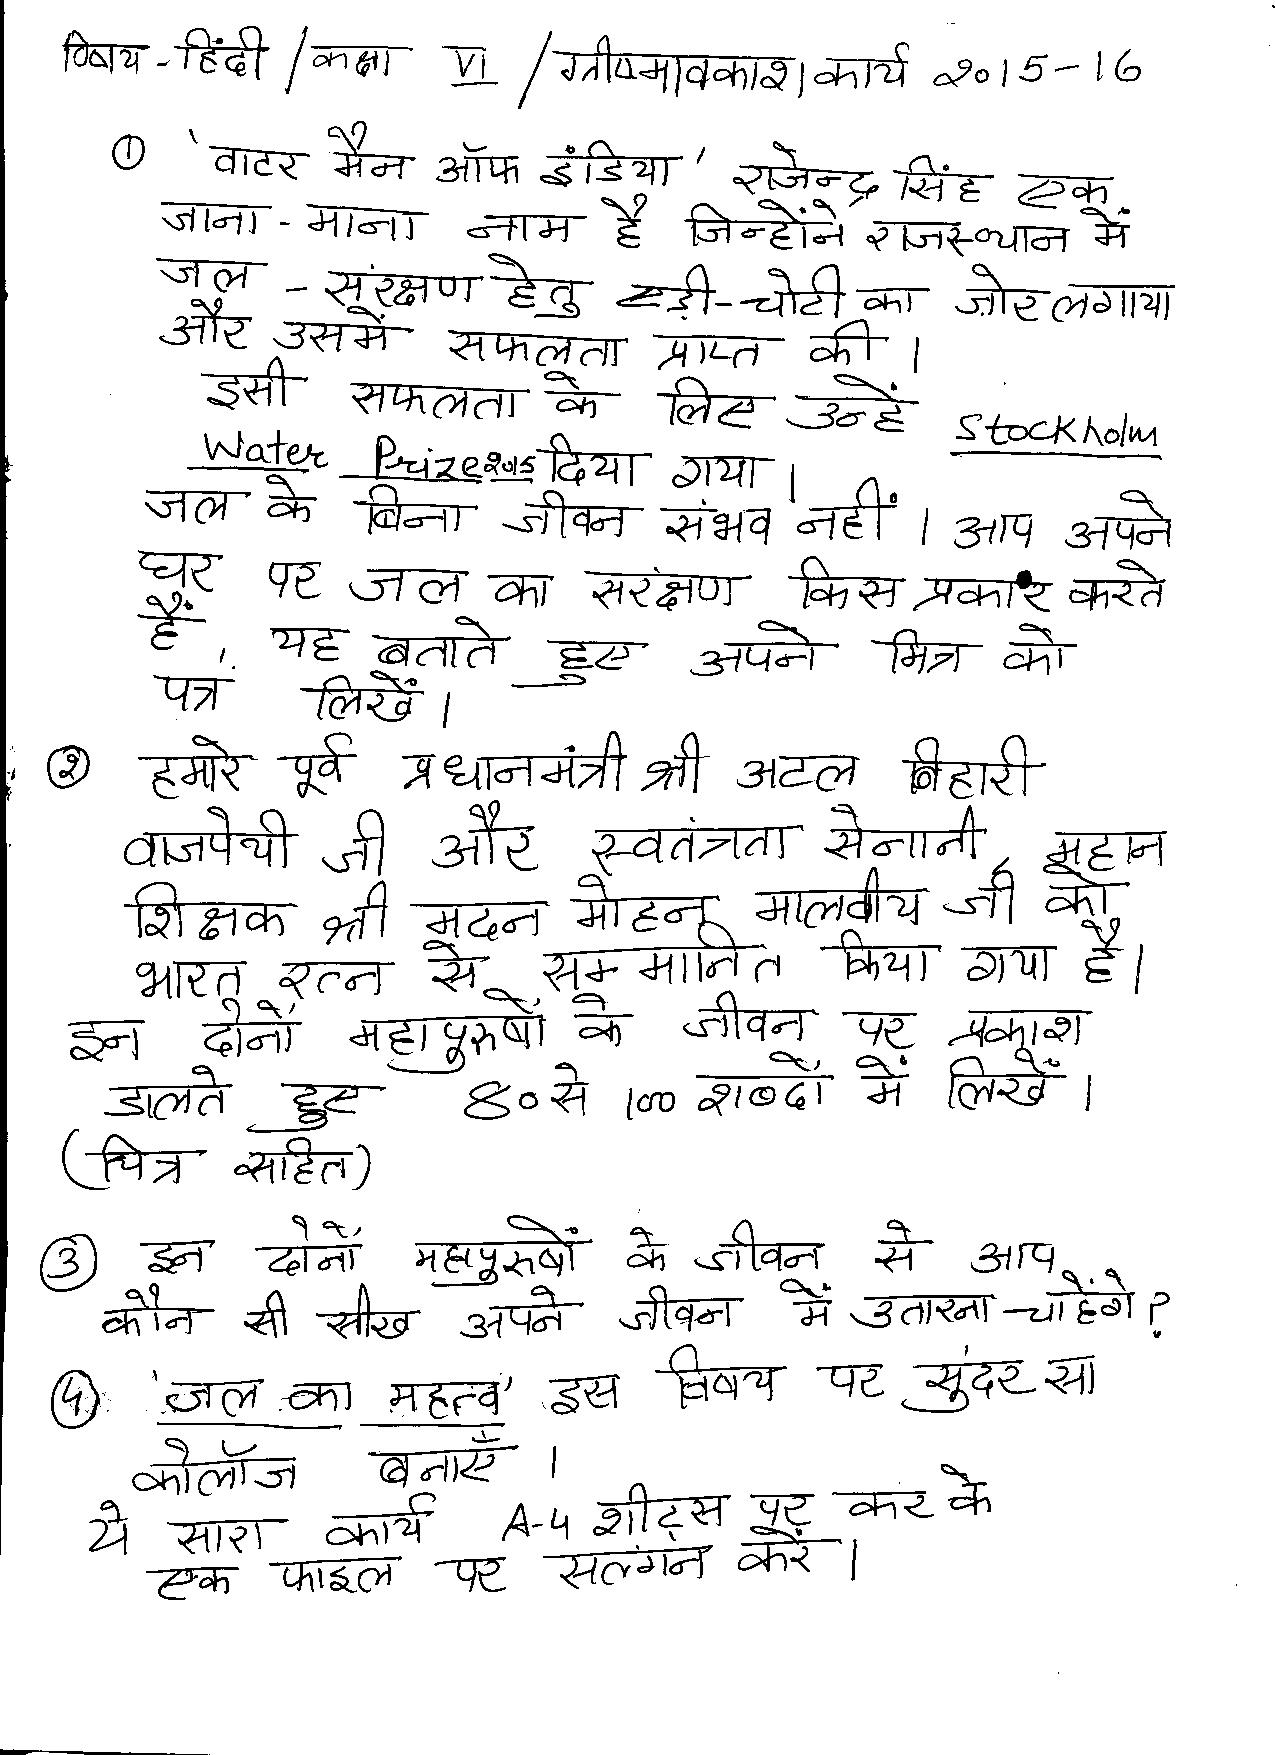 विषय - हिंदी / कक्षा VI / ग्रीष्मावकाश कार्य २०15-16
① 'वाटर मैन ऑफ इंडिया' राजेन्द्र सिंह एक
जाना - माना नाम है जिन्होंने राजस्थान में
जल - संरक्षण हेतु एड़ी-चोटी का ज़ोर लगाया
और उसमें सफलता प्राप्त की ।
इसी सफलता के लिए उन्हें Stockholm
Water Prize २०15 दिया गया ।
जल के बिना जीवन संभव नहीं । आप अपने
घर पर जल का सरंक्षण किस प्रकार करते
हैं, यह बताते हुए अपने मित्र को
पत्र लिखें ।
② हमारे पूर्व प्रधानमंत्री श्री अटल बिहारी
वाजपेयी जी और स्वतंत्रता सेनानी, महान
शिक्षक श्री मदन मोहन मालवीय जी को
भारत रत्न से सम्मानित किया गया है ।
इन दोनों महापुरुषों के जीवन पर प्रकाश
डालते हुए 80 से 100 शब्दों में लिखें ।
(चित्र सहित)
③ इन दोनों महापुरुषों के जीवन से आप
कौन सी सीख अपने जीवन में उतारना चाहेंगे?
④ 'जल का महत्व' इस विषय पर सुंदर सा
कोलॉज बनाएँ ।
ये सारा कार्य A-4 शीट्स पर कर के
एक फाइल पर सलंग्न करें ।